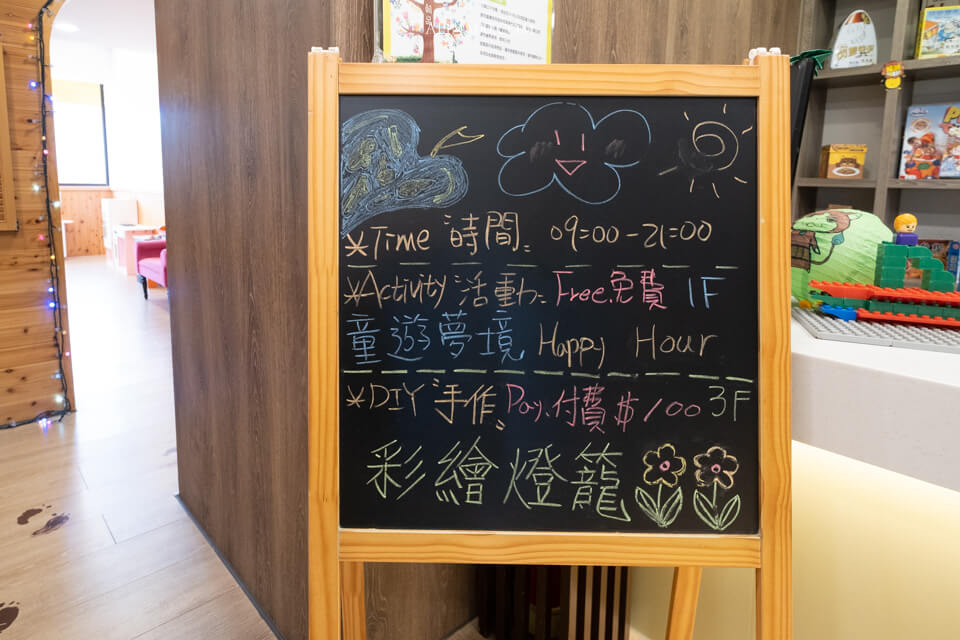 *Time 時間: 09:00-21:00
*Activity 活動: Free.免費 1F
童遊夢境 Happy Hour
*DIY "手作" Pay.付費 $100 3F
彩繪燈籠